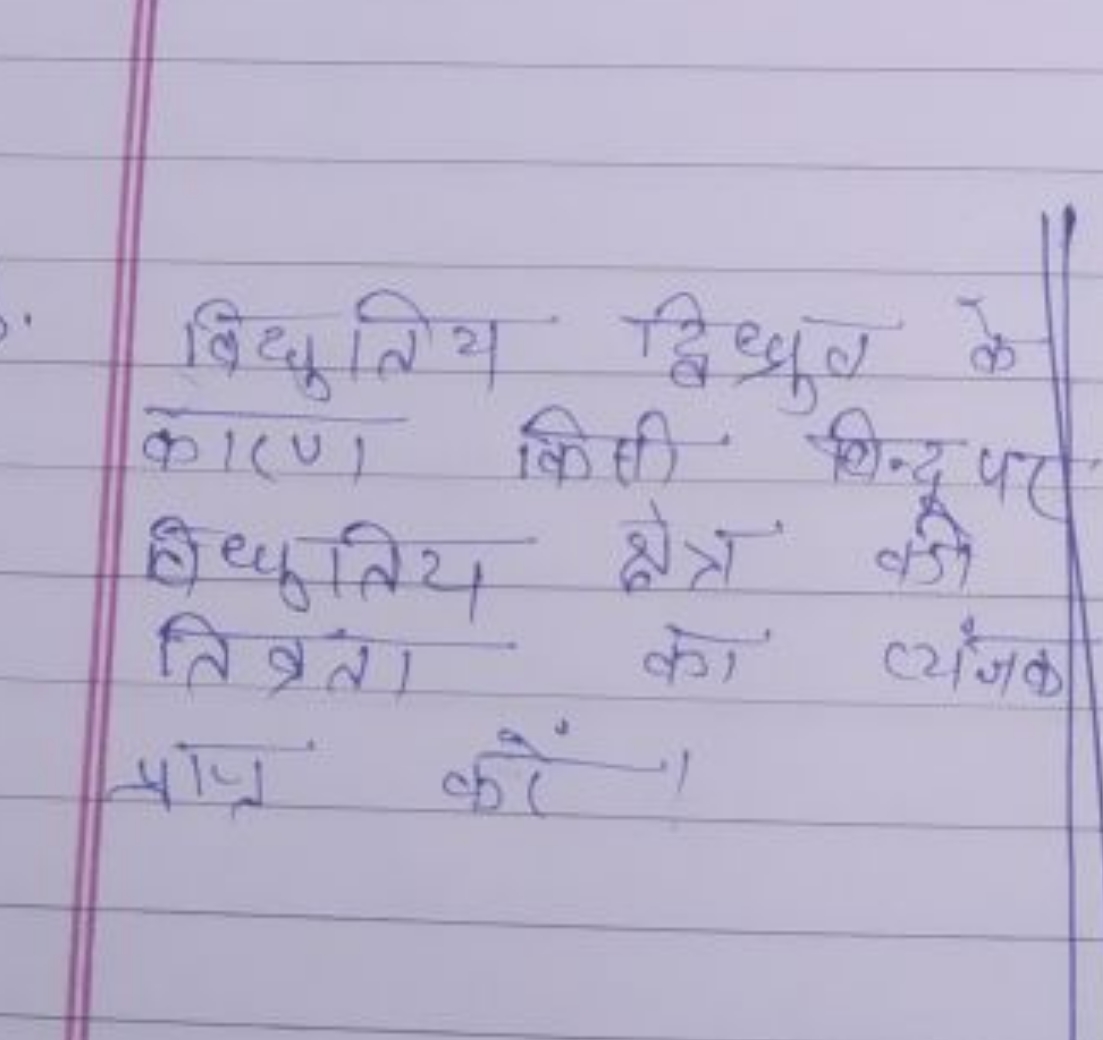 विध्युतिय द्विध्युव के
कारण किसी बिन्दु पर
विध्युतिय क्षेत्र की
तिव्रता का व्यंजक
प्राप्त करें।